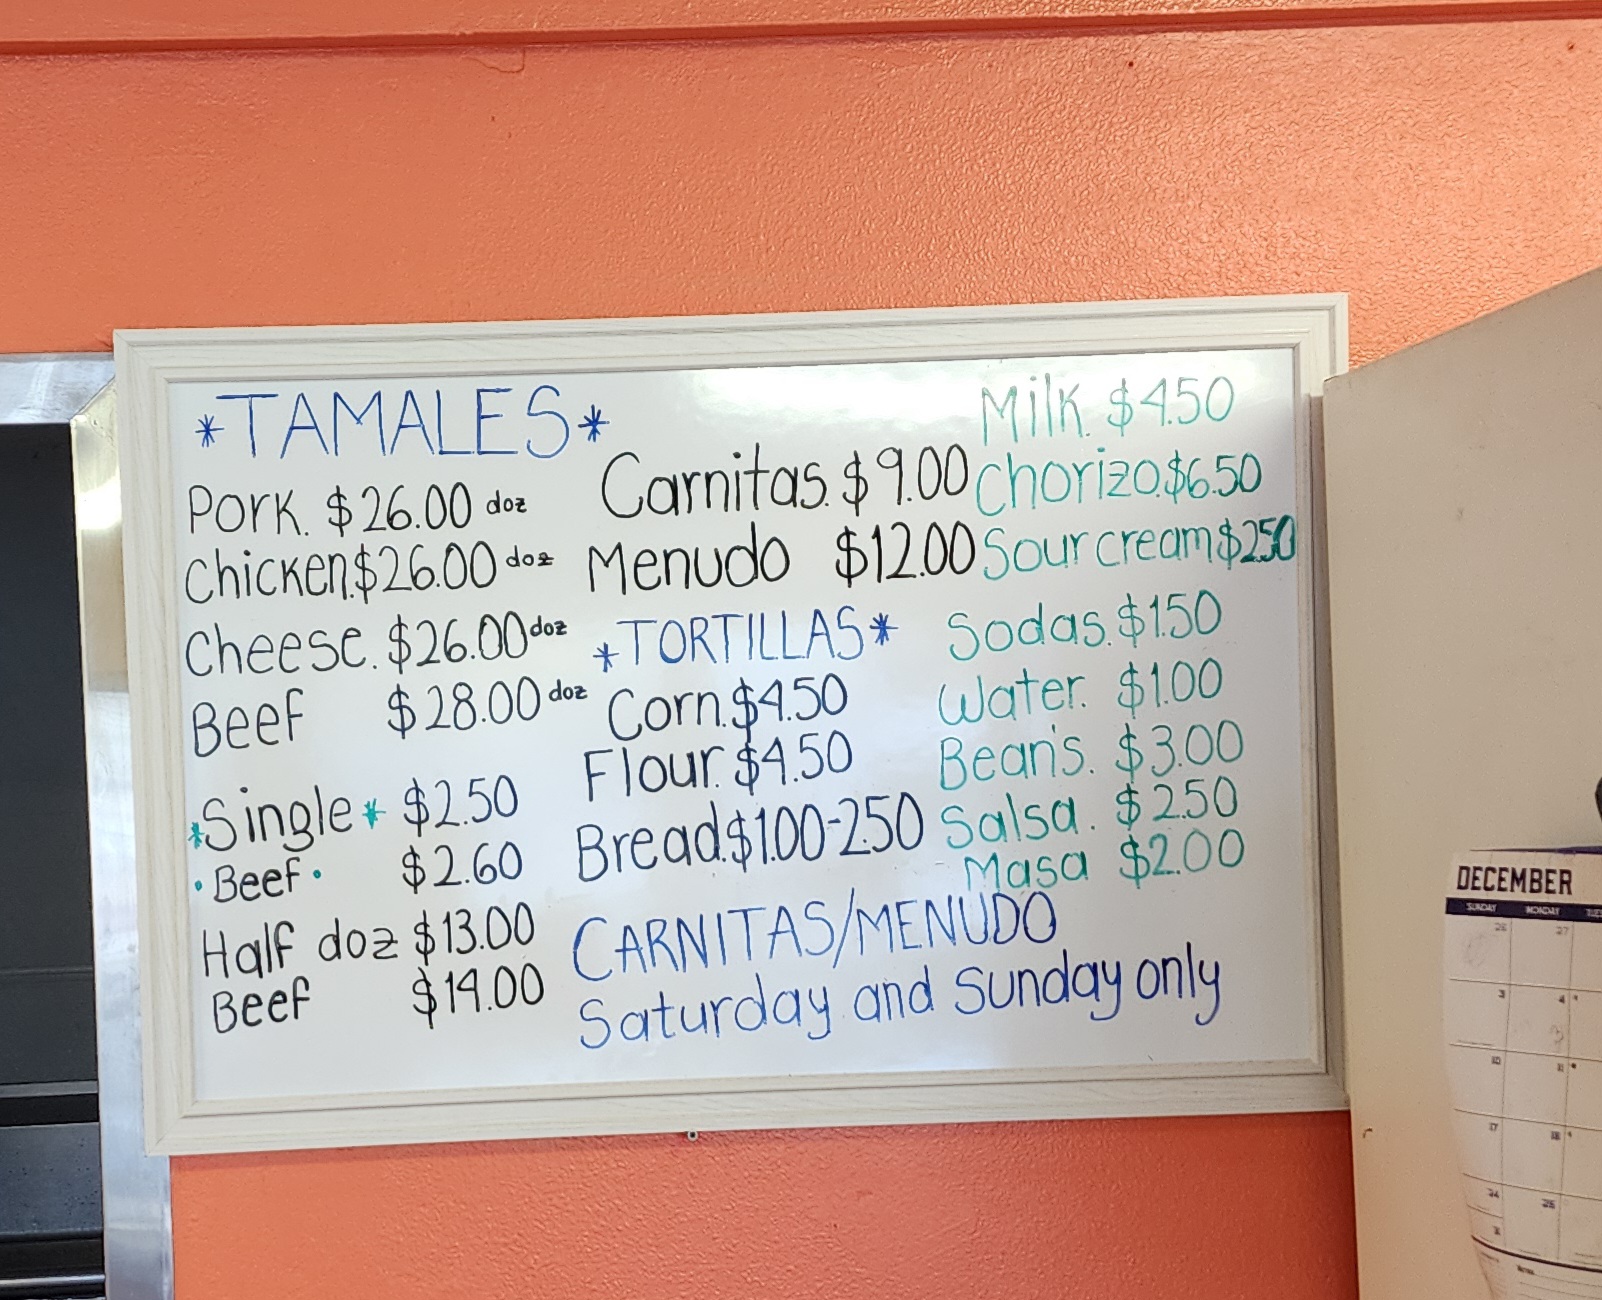 *TAMALES*
Pork. $26.00 doz
Chicken.$26.00 doz
Cheese. $26.00 doz
Beef $28.00 doz
*Single* $2.50
•Beef• $2.60
Half doz $13.00
Beef $14.00
Carnitas. $9.00
Menudo $12.00
*TORTILLAS*
Corn.$4.50
Flour.$4.50
Bread.$1.00-2.50
Milk. $4.50
Chorizo.$6.50
Sour cream $2.50
Sodas. $1.50
Water. $1.00
Bean's. $3.00
Salsa. $2.50
Masa $2.00
CARNITAS/MENUDO
Saturday and Sunday only
DECEMBER
SUNDAY MONDAY
26 27
3 4
10 11
17 18
24 25
31